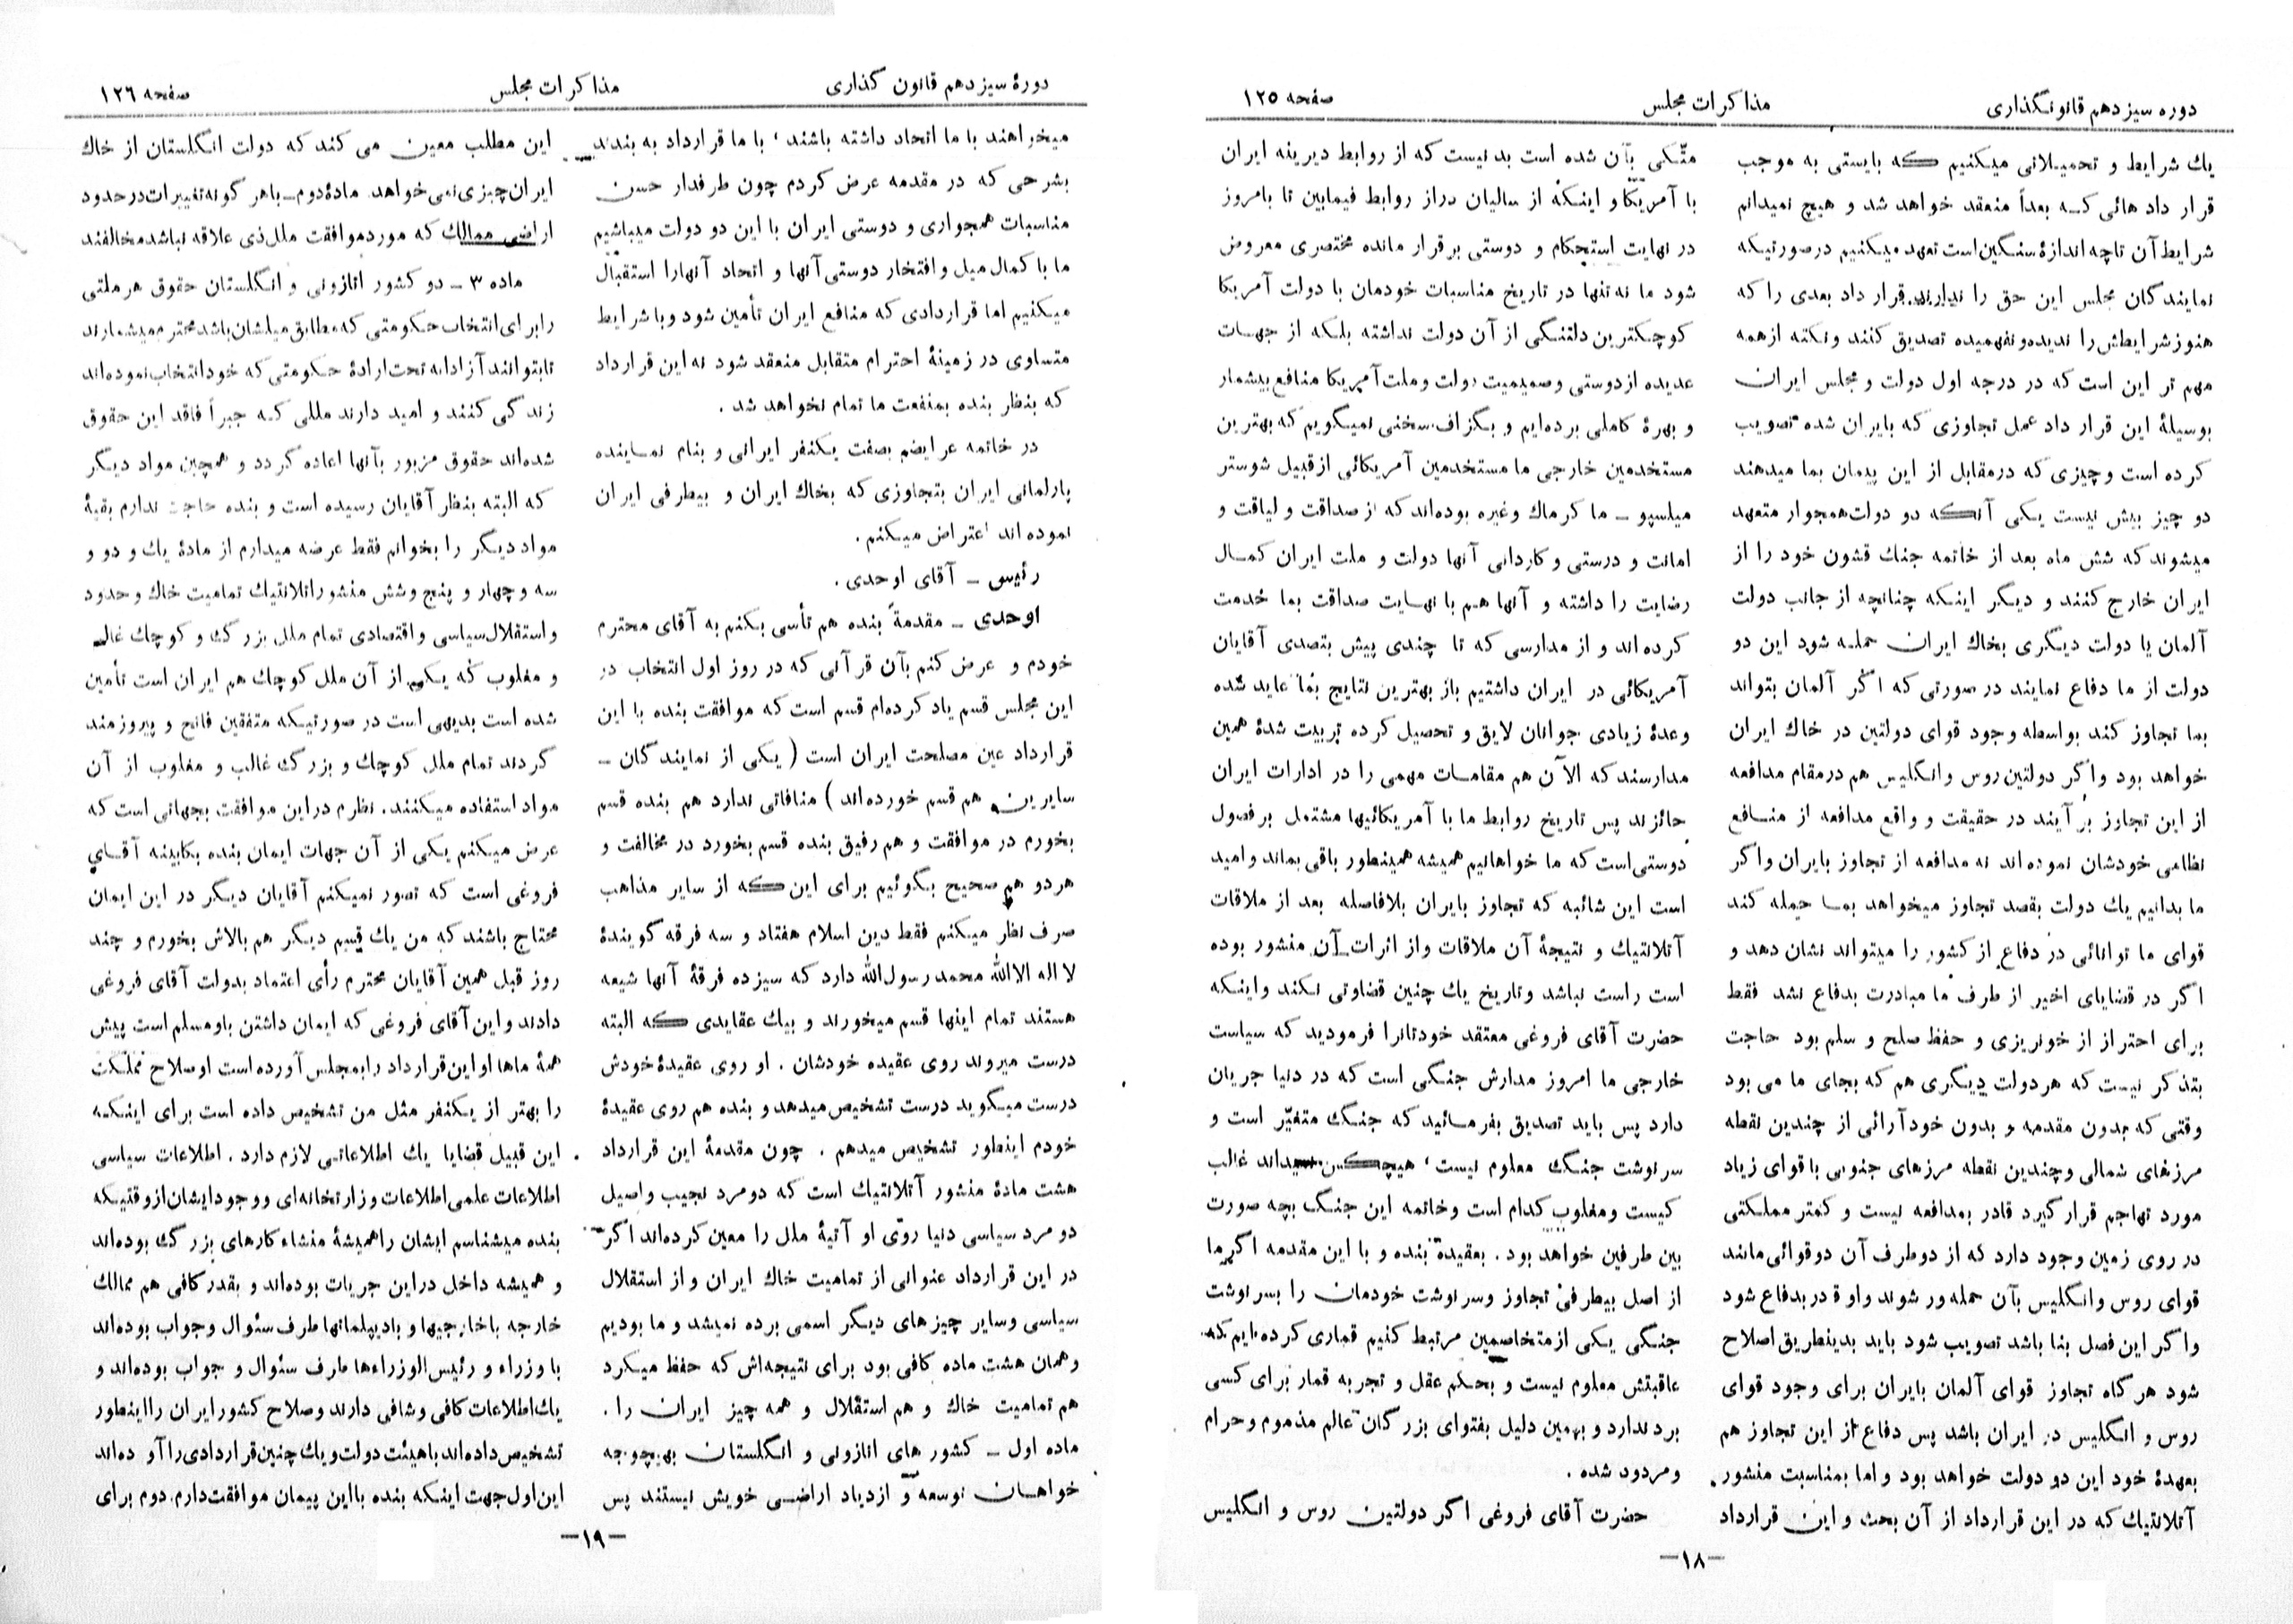 دوره سیزدهم قانونگذاری
مذاکرات مجلس
صفحه ۱۲۵
یك شرایط و تحمیلاتی میکنیم که بایستی به موجب
قرار داد هائی که بعداً منعقد خواهد شد و هیچ نمیدانم
شرایط آن تاچه اندازهٔ سنگین است تعهد میکنیم درصورتیکه
نمایندگان مجلس این حق را ندارند. قرار داد بعدی را که
هنوز شرایطش را ندیده و نفهمیده تصدیق کنند و نکته ازهمه
مهم تر این است که در درجه اول دولت و مجلس ایران
بوسیلهٔ این قرار داد عمل تجاوزی که بایران شده تصویب
کرده است و چیزی که درمقابل از این پیمان بما میدهند
دو چیز بیش نیست یکی آنکه دو دولت همجوار متعهد
میشوند که شش ماه بعد از خاتمه جنك قشون خود را از
ایران خارج کنند و دیگر اینکه چنانچه از جانب دولت
آلمان یا دولت دیگری بخاك ایران حمله شود این دو
دولت از ما دفاع نمایند در صورتی که اگر آلمان بتواند
بما تجاوز کند بواسطه وجود قوای دولتین در خاك ایران
خواهد بود واگر دولتین روس وانگلیس هم درمقام مدافعه
از این تجاوز بر آیند در حقیقت و واقع مدافعه از منافع
نظامی خودشان نموده‌اند نه مدافعه از تجاوز بایران واگر
ما بدانیم یك دولت بقصد تجاوز میخواهد بما حمله کند
قوای ما توانائی در دفاع از کشور را میتواند نشان دهد و
اگر در قضایای اخیر از طرف ما مبادرت بدفاع نشد فقط
برای احتراز از خونریزی و حفظ صلح و سلم بود حاجت
بتذکر نیست که هردولت دیگری هم که بجای ما می بود
وقتی که بدون مقدمه و بدون خودآرائی از چندین نقطه
مرزهای شمالی وچندین نقطه مرزهای جنوبی با قوای زیاد
مورد تهاجم قرار گیرد قادر بمدافعه نیست و کمتر مملکتی
در روی زمین وجود دارد که از دوطرف آن دوقوائی مانند
قوای روس وانگلیس بآن حمله‌ور شوند واو قادر بدفاع شود
واگر این فصل بنا باشد تصویب شود باید بدینطریق اصلاح
شود هرگاه تجاوز قوای آلمان بایران برای وجود قوای
روس و انگلیس در ایران باشد پس دفاع از این تجاوز هم
بعهدهٔ خود این دو دولت خواهد بود و اما بمناسبت منشور
آتلانتیك که در این قرارداد از آن بحث و این قرارداد
متّکی بآن شده است بد نیست که از روابط دیرینه ایران
با آمریکا و اینکه از سالیان دراز روابط فیمابین تا بامروز
در نهایت استحکام و دوستی برقرار مانده مختصری معروض
شود ما نه تنها در تاریخ مناسبات خودمان با دولت آمریکا
کوچکترین دلتنگی از آن دولت نداشته بلکه از جهات
عدیده ازدوستی وصمیمیت دولت وملت آمریکا منافع بیشمار
و بهرهٔ کاملی برده‌ایم و بگزاف سخنی نمیگویم که بهترین
مستخدمین خارجی ما مستخدمین آمریکائی ازقبیل شوستر
میلسپو ـ ما کرماك وغیره بوده‌اند که از صداقت و لیاقت و
امانت و درستی وکاردانی آنها دولت و ملت ایران کمال
رضایت را داشته و آنها هم با نهایت صداقت بما خدمت
کرده‌اند و از مدارسی که تا چندی پیش بتصدی آقایان
آمریکائی در ایران داشتیم باز بهترین نتایج بما عاید شده
وعدهٔ زیادی جوانان لایق و تحصیل کرده تربیت شدهٔ همین
مدارسند که الآن هم مقامات مهمی را در ادارات ایران
حائزند پس تاریخ روابط ما با آمریکائیها مشتمل برفصول
دوستی است که ما خواهانیم همیشه همینطور باقی بماند وامید
است این شائبه که تجاوز بایران بلافاصله بعد از ملاقات
آتلانتیك و نتیجهٔ آن ملاقات واز اثرات آن منشور بوده
است راست نباشد وتاریخ یك چنین قضاوتی نکند واینکه
حضرت آقای فروغی معتقد خودتانرا فرمودید که سیاست
خارجی ما امروز مدارش جنگی است که در دنیا جریان
دارد پس باید تصدیق بفرمائید که جنگ متغیّر است و
سرنوشت جنگ معلوم نیست، هیچکس نمیداند غالب
کیست ومغلوب کدام است وخاتمه این جنگ بچه صورت
بین طرفین خواهد بود. بعقیدهٔ بنده و با این مقدمه اگر ما
از اصل بیطرفی تجاوز وسرنوشت خودمان را بسرنوشت
جنگی یکی ازمتخاصمین مرتبط کنیم قماری کرده‌ایم که
عاقبتش معلوم نیست و بحکم عقل و تجربه قمار برای کسی
برد ندارد و بهمین دلیل بفتوای بزرگان عالم مذموم وحرام
ومردود شده.
حضرت آقای فروغی اگر دولتین روس و انگلیس
ـ۱۸ـ
دورهٔ سیزدهم قانون گذاری
مذاکرات مجلس
صفحه ۱۲٦
میخراهند با ما اتحاد داشته باشند، با ما قرارداد به بندند
بشرحی که در مقدمه عرض کردم چون طرفدار حسن
مناسبات همجواری و دوستی ایران با این دو دولت میباشیم
ما با کمال میل وافتخار دوستی آنها و اتحاد آنهارا استقبال
میکنیم اما قراردادی که منافع ایران تأمین شود وباشرایط
متساوی در زمینهٔ احترام متقابل منعقد شود نه این قرارداد
که بنظر بنده بمنفعت ما تمام نخواهد شد.
در خاتمه عرایضم بصفت یکنفر ایرانی و بنام نماینده
پارلمانی ایران بتجاوزی که بخاك ایران و بیطرفی ایران
نموده‌اند اعتراض میکنم.
رئیس ـ آقای اوحدی.
اوحدی ـ مقدمةً بنده هم تأسی بکنم به آقای محترم
خودم و عرض کنم بآن قرآنی که در روز اول انتخاب در
این مجلس قسم یاد کرده‌ام قسم است که موافقت بنده با این
قرارداد عین مصلحت ایران است (یکی از نمایندگان ـ
سایرین هم قسم خورده‌اند) منافاتی ندارد هم بنده قسم
بخورم در موافقت و هم رفیق بنده قسم بخورد در مخالفت و
هردو هم صحیح بگوئیم برای این که از سایر مذاهب
صرف نظر میکنم فقط دین اسلام هفتاد و سه فرقه گویندهٔ
لااله الاالله محمد رسول‌الله دارد که سیزده فرقهٔ آنها شیعه
هستند تمام اینها قسم میخورند و بیك عقایدی که البته
درست میروند روی عقیده خودشان. او روی عقیدهٔ خودش
درست میگوید درست تشخیص میدهد و بنده هم روی عقیدهٔ
خودم اینطور تشخیص میدهم. چون مقدمهٔ این قرارداد
هشت مادهٔ منشور آتلانتیك است که دومرد نجیب واصیل
دو مرد سیاسی دنیا روی او آتیهٔ ملل را معین کرده‌اند اگر
در این قرارداد عنوانی از تمامیت خاك ایران واز استقلال
سیاسی وسایر چیزهای دیگر اسمی برده نمیشد و ما بودیم
وهمان هشت ماده کافی بود برای نتیجه‌اش که حفظ میکرد
هم تمامیت خاك و هم استقلال و همه چیز ایران را.
ماده اول ـ کشور های اتازونی و انگلستان بهیچوجه
خواهان توسعه و ازدیاد اراضی خویش نیستند پس
این مطلب معین می کند که دولت انگلستان از خاك
ایران چیزی نمی‌خواهد. مادهٔ دوم ـ باهر گونه تغییرات درحدود
اراضی ممالك که موردموافقت ملل ذی علاقه نباشد مخالفند
ماده ۳ ـ دو کشور اتازونی و انگلستان حقوق هر ملتی
رابرای انتخاب حکومتی که مطابق میلشان باشد محترم میشمارند
تابتوانند آزادانه تحت ارادهٔ حکومتی که خود انتخاب نموده‌اند
زندگی کنند و امید دارند مللی که جبراً فاقد این حقوق
شده‌اند حقوق مزبور بآنها اعاده گردد و همچنین مواد دیگر
که البته بنظر آقایان رسیده است و بنده حاجت ندارم بقیهٔ
مواد دیگر را بخوانم فقط عرضه میدارم از مادهٔ یك و دو و
سه و چهار و پنج وشش منشور اتلانتیك تمامیت خاك وحدود
واستقلال سیاسی واقتصادی تمام ملل بزرگ و کوچك غالب
و مغلوب که یکی از آن ملل کوچك هم ایران است تأمین
شده است بدیهی است در صورتیکه متفقین فاتح و پیروزمند
گردند تمام ملل کوچك و بزرگ غالب و مغلوب از آن
مواد استفاده میکنند. نظرم دراین موافقت بجهاتی است که
عرض میکنم یکی از آن جهات ایمان بنده بکابینه آقای
فروغی است که تصور نمیکنم آقایان دیگر در این ایمان
محتاج باشند که من یك قسم دیگر هم بالاش بخورم و چند
روز قبل همین آقایان محترم رأی اعتماد بدولت آقای فروغی
دادند واین آقای فروغی که ایمان داشتن باو مسلم است پیش
همهٔ ماها او این قرارداد را بمجلس آورده است او صلاح مملکت
را بهتر از یکنفر مثل من تشخیص داده است برای اینکه
این قبیل قضایا یك اطلاعاتی لازم دارد. اطلاعات سیاسی
اطلاعات علمی اطلاعات وزارتخانه‌ای ووجود ایشان ازوقتیکه
بنده میشناسم ایشان را همیشهٔ منشاء کارهای بزرگ بوده‌اند
و همیشه داخل دراین جریانات بوده‌اند و بقدر کافی هم ممالك
خارجه باخارجیها و بادیپلماتها طرف سئوال وجواب بوده‌اند
با وزراء و رئیس‌الوزراءها طرف سئوال و جواب بوده‌اند و
یك اطلاعات کافی وشافی دارند وصلاح کشور ایران را اینطور
تشخیص داده‌اند با هیئت دولت و یك چنین قراردادی را آورده‌اند
این اول جهت اینکه بنده بااین پیمان موافقت دارم، دوم برای
ـ۱۹ـ